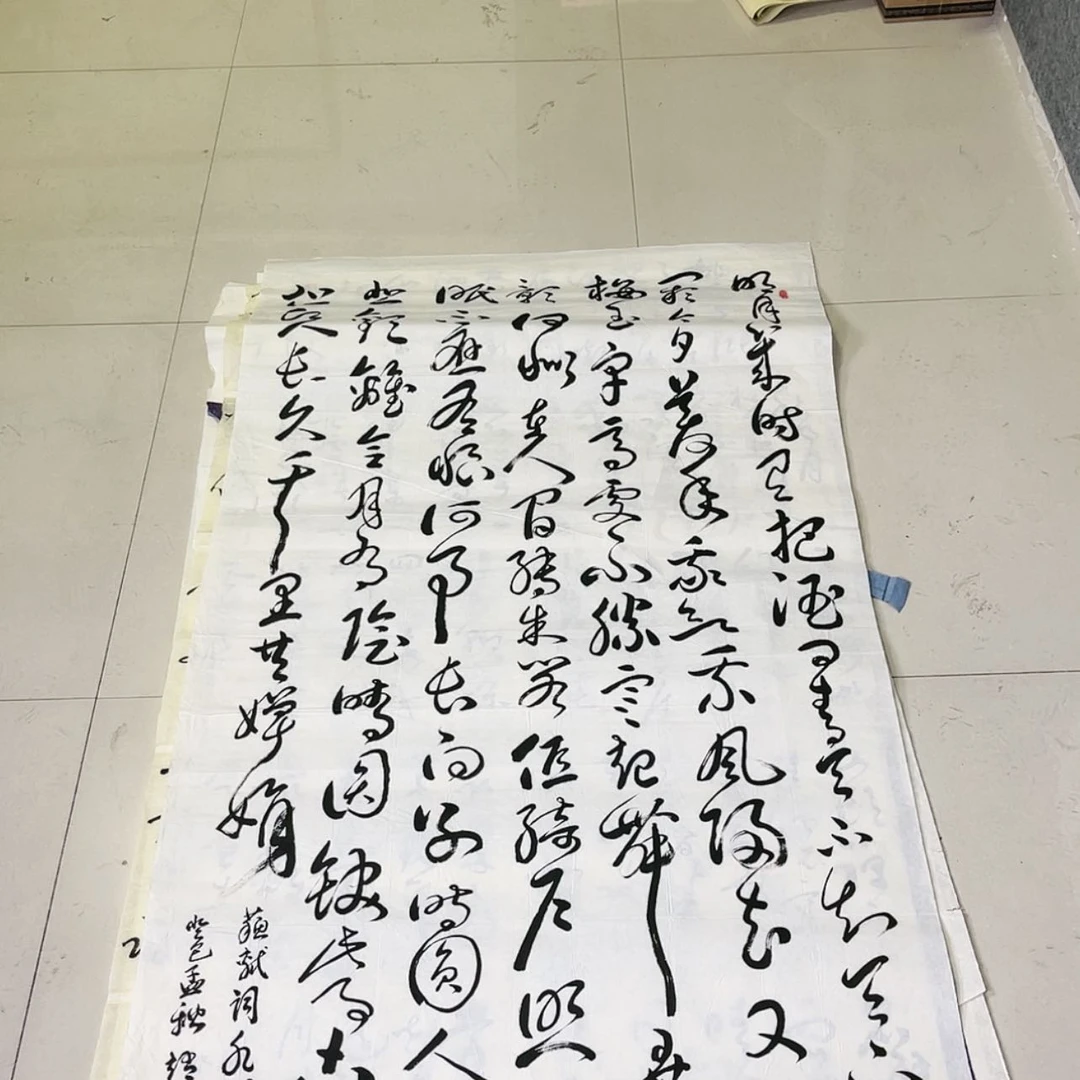 明月幾時有把酒問青天不知天
闕今夕是何年我欲乘風歸去又
樓玉宇高處不勝寒起舞弄
影何似在人間轉朱閣低綺戶照
眠不應有恨何事長向別時圓人
悲歡離合月有陰晴圓缺此事古
但願人長久千里共嬋娟
蘇軾詞水
孟秋